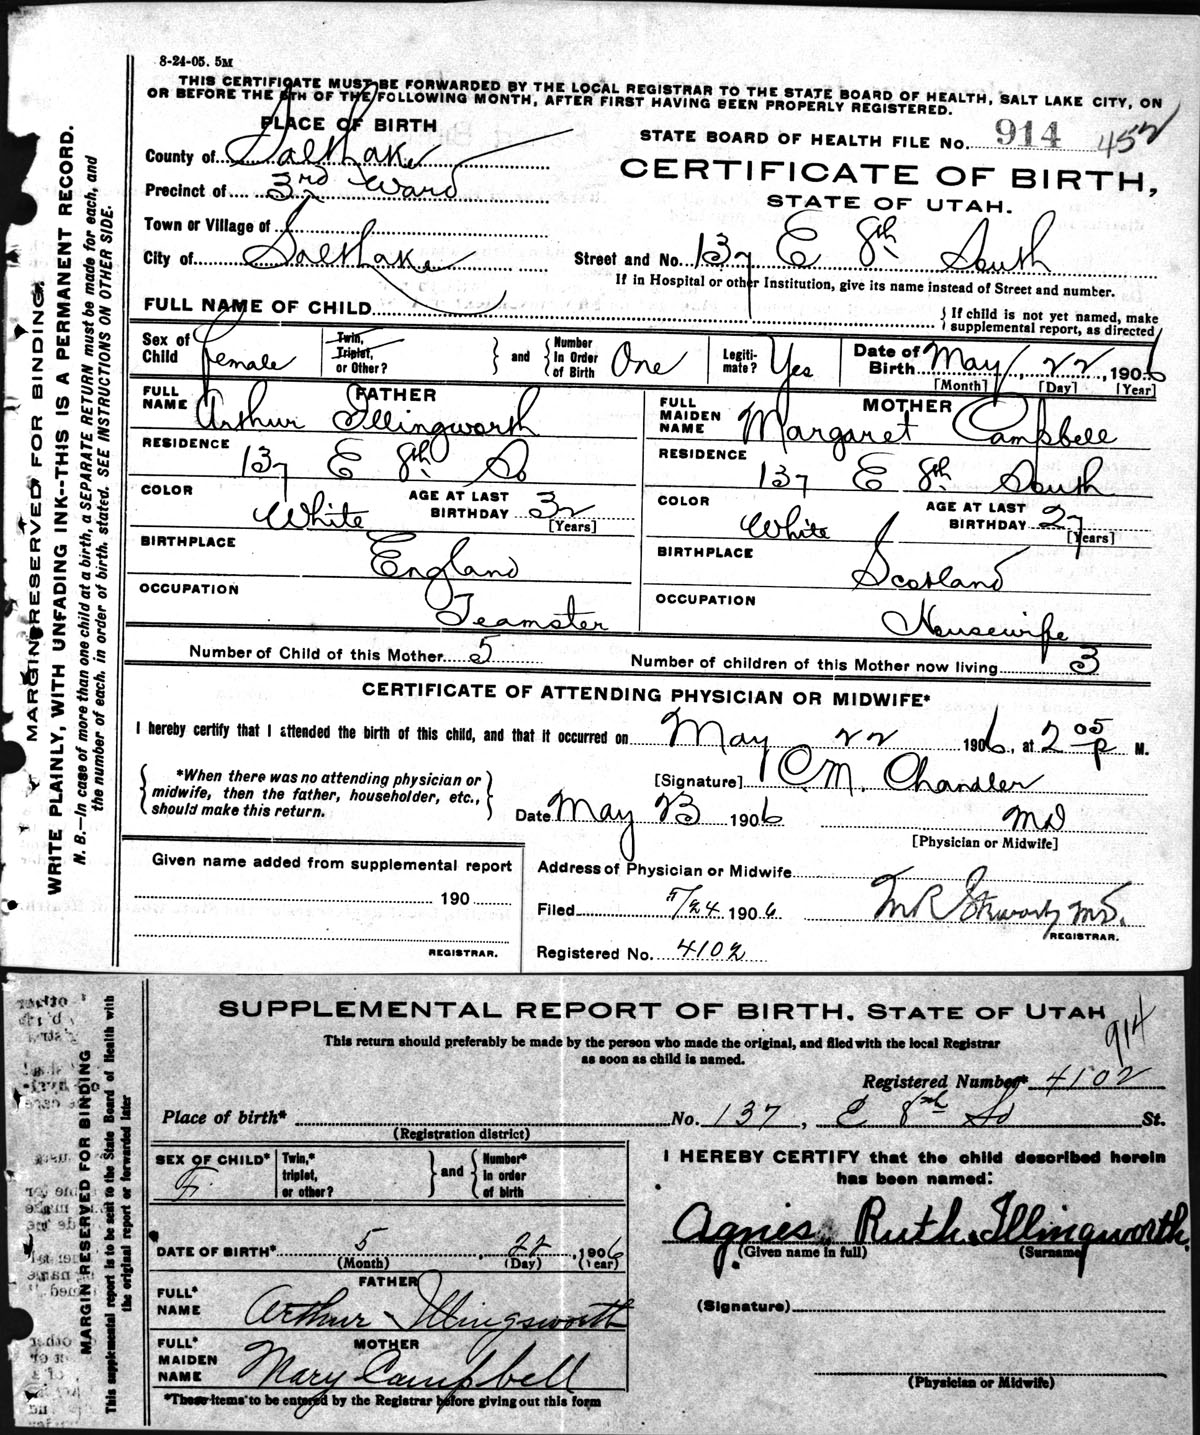 8-24-05. 5M
THIS CERTIFICATE MUST BE FORWARDED BY THE LOCAL REGISTRAR TO THE STATE BOARD OF HEALTH, SALT LAKE CITY, ON
OR BEFORE THE 5TH OF THE FOLLOWING MONTH, AFTER FIRST HAVING BEEN PROPERLY REGISTERED.
PLACE OF BIRTH
STATE BOARD OF HEALTH FILE No. 914 452
County of Salt Lake
CERTIFICATE OF BIRTH,
Precinct of 3rd Ward
STATE OF UTAH.
Town or Village of
City of Salt Lake
Street and No. 137 E 8th South
If in Hospital or other Institution, give its name instead of Street and number.
FULL NAME OF CHILD
{ If child is not yet named, make
supplemental report, as directed
Sex of Child female
Twin, Triplet, or Other?
and
Number In Order of Birth One
Legiti- mate? Yes
Date of Birth May, 22, 1906
[Month] [Day] [Year]
FATHER
FULL NAME Arthur Illingworth
RESIDENCE 137 E 8th So
COLOR White
AGE AT LAST BIRTHDAY 32 [Years]
BIRTHPLACE England
OCCUPATION Teamster
MOTHER
FULL MAIDEN NAME Margaret Campbell
RESIDENCE 137 E 8th South
COLOR White
AGE AT LAST BIRTHDAY 27 [Years]
BIRTHPLACE Scotland
OCCUPATION Housewife
Number of Child of this Mother 5
Number of children of this Mother now living 3
CERTIFICATE OF ATTENDING PHYSICIAN OR MIDWIFE*
I hereby certify that I attended the birth of this child, and that it occurred on May 22 1906, at 2 05 P M.
*When there was no attending physician or
midwife, then the father, householder, etc.,
should make this return.
[Signature] C.M. Chandler
Date May 23 1906 MD
[Physician or Midwife]
Given name added from supplemental report
190
REGISTRAR.
Address of Physician or Midwife
Filed 5/24 1906
REGISTRAR.
Registered No. 4102
MARGIN RESERVED FOR BINDING.
WRITE PLAINLY, WITH UNFADING INK--THIS IS A PERMANENT RECORD.
N. B.—In case of more than one child at a birth, a SEPARATE RETURN must be made for each, and
the number of each, in order of birth, stated. SEE INSTRUCTIONS ON OTHER SIDE.
SUPPLEMENTAL REPORT OF BIRTH, STATE OF UTAH
914
This return should preferably be made by the person who made the original, and filed with the local Registrar
as soon as child is named.
Registered Number* 4102
Place of birth* No. 137, E 8th So St.
(Registration district)
SEX OF CHILD* F.
Twin,* triplet, or other?
and
Number* in order of birth
I HEREBY CERTIFY that the child described herein
has been named:
Agnes Ruth Illingworth
(Given name in full) (Surname)
DATE OF BIRTH* 5, 22, 1906
(Month) (Day) (Year)
FATHER
FULL* NAME Arthur Illingsworth
MOTHER
FULL* MAIDEN NAME Mary Campbell
(Signature)
(Physician or Midwife)
*These items to be entered by the Registrar before giving out this form
MARGIN RESERVED FOR BINDING
This supplemental report to be sent to the State Board of Health with
the original report or forwarded later